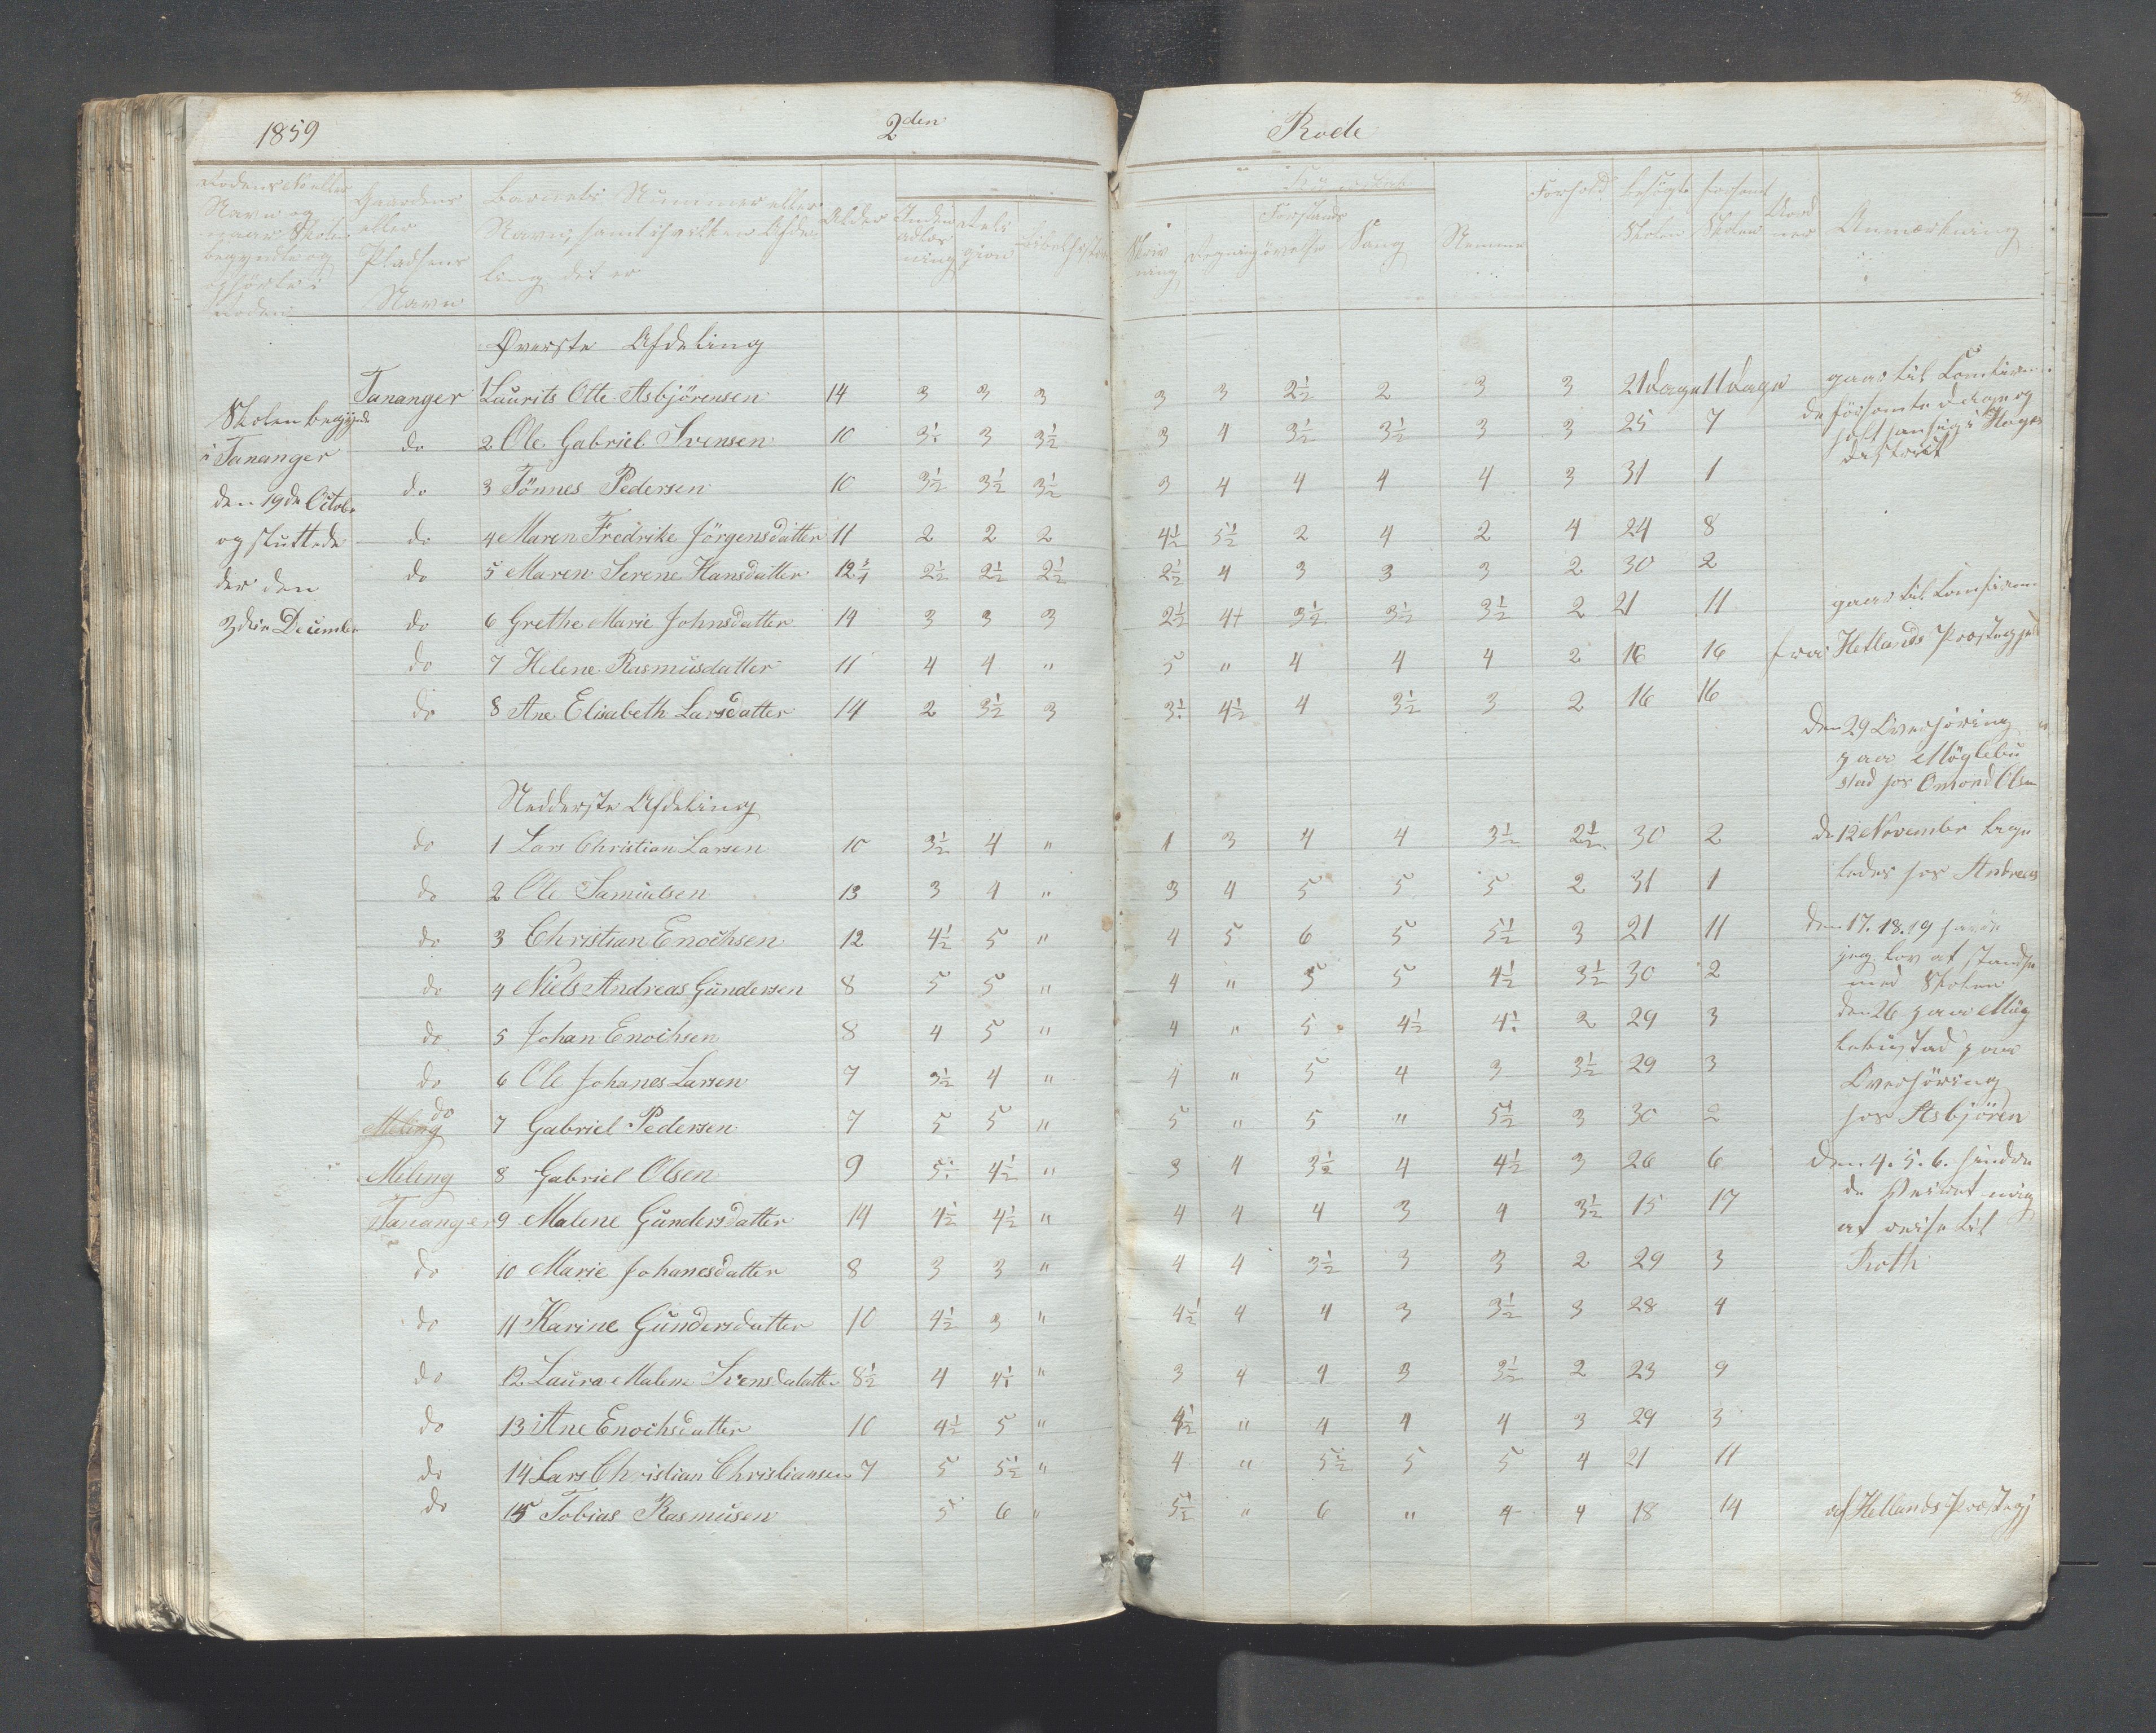 1859 2den Rode
Rodens No eller Navn og naar Skolen begyndte og ophørte i Roden
Gaardens eller Pladsens Navn
Barnets Nummer eller Navn, samt i hvilken Afdeling det er
Alder
Religion
Bibelhistorie
Skrivning
Regning
Forstands øvelse
Sang
Nemme
Forhold
besøgt Skolen
forsømt Skolen
Anmærkning
Øverste Afdeling
Skolen begynde i Tananger den 19de Octobr og sluttede der den 3die December
Tananger 1 Laurits Otte Asbjörensen 14 3 3 3 3 3 2½ 2 3 3 21 dage 11 dage gaar til Confirm.
do 2 Ole Gabriel Svensen 10 3½ 3 3½ 3 4 3½ 3½ 3 3 25 7
do 3 Tönnes Pedersen 10 3½ 3½ 3½ 3 4 4 4 4 3 31 1
do 4 Maren Fredrike Jörgensdatter 11 2 2 2 4½ 5½ 2 4 2 4 24 8
do 5 Maren Serene Hansdatter 12¾ 2½ 2½ 2½ 2½ 4 3 3 3 2 30 2
do 6 Grethe Marie Johnsdatter 14 3 3 3 2½ 4+ 3½ 3½ 3½ 2 21 11 gaar til Confirm
do 7 Helene Rasmusdatter 11 4 4 " 5 " 4 4 4 2 16 16 fra Hetlands Præstegj
do 8 Ane Elisabeth Larsdatter 14 2 3½ 3 3½ 4½ 4 3½ 3 2 16 16
den 29 Overhöring
paa Möglebu
stad hos Omond Olsen
Nedderste Afdeling
do 1 Lars Christian Larsen 10 3½ 4 " 1 3 4 4 3½ 2½ 30 2 d 12 November
do 2 Ole Samuelsen 13 3 4 " 3 4 5 5 5 2 31 1 hos Andreas
do 3 Christian Enochsen 12 4½ 5 " 4 5 6 5 5½ 3 21 11 den 17. 18. 19 havde
jeg Lov at standse
do 4 Niels Andreas Gundersen 8 5 5 " 4 " 5 5 4½ 3½ 30 2 med Skolen
do 5 Johan Enochsen 8 4 5 " 4 " 5 4½ 4½ 2 29 3 den 26 paa Mög
lebustad paa
do 6 Ole Johanes Larsen 7 3½ 4 " 4 " 5 4 3 3½ 29 3 Overhöring
do Meling 7 Gabriel Pedersen 7 5 5 " 5 " 5 " 5½ 3 30 2 hos Asbjören
Meling 8 Gabriel Olsen 9 5½ 4½ " 3 4 3½ 4 4½ 3 26 6 den 4. 5. 6. hindre
de Veiret mig
Tananger 9 Malene Gundersdatter 14 4½ 4½ " 4 4 4 3 4 3½ 15 17 at reise til
do 10 Marie Johanesdatter 8 3 3 " 4 4 3½ 3 3 2 29 3 Roth
do 11 Karine Gundersdatter 10 4½ 3 " 4½ 4 4 3 3½ 3 28 4
do 12 Laura Malene Svensdatter 8½ 4 4½ " 3 4 4 3 3½ 2 23 9
do 13 Ane Enochsdatter 10 4½ 5 " 4½ " 4 4 4 3 29 3
do 14 Lars Christian Christiansen 7 5 5½ " 4 " 5½ 5 5 4 21 11
do 15 Tobias Rasmusen 5 6 " 5½ " 6 " 4 4 18 14 af Hetlands Præstegj